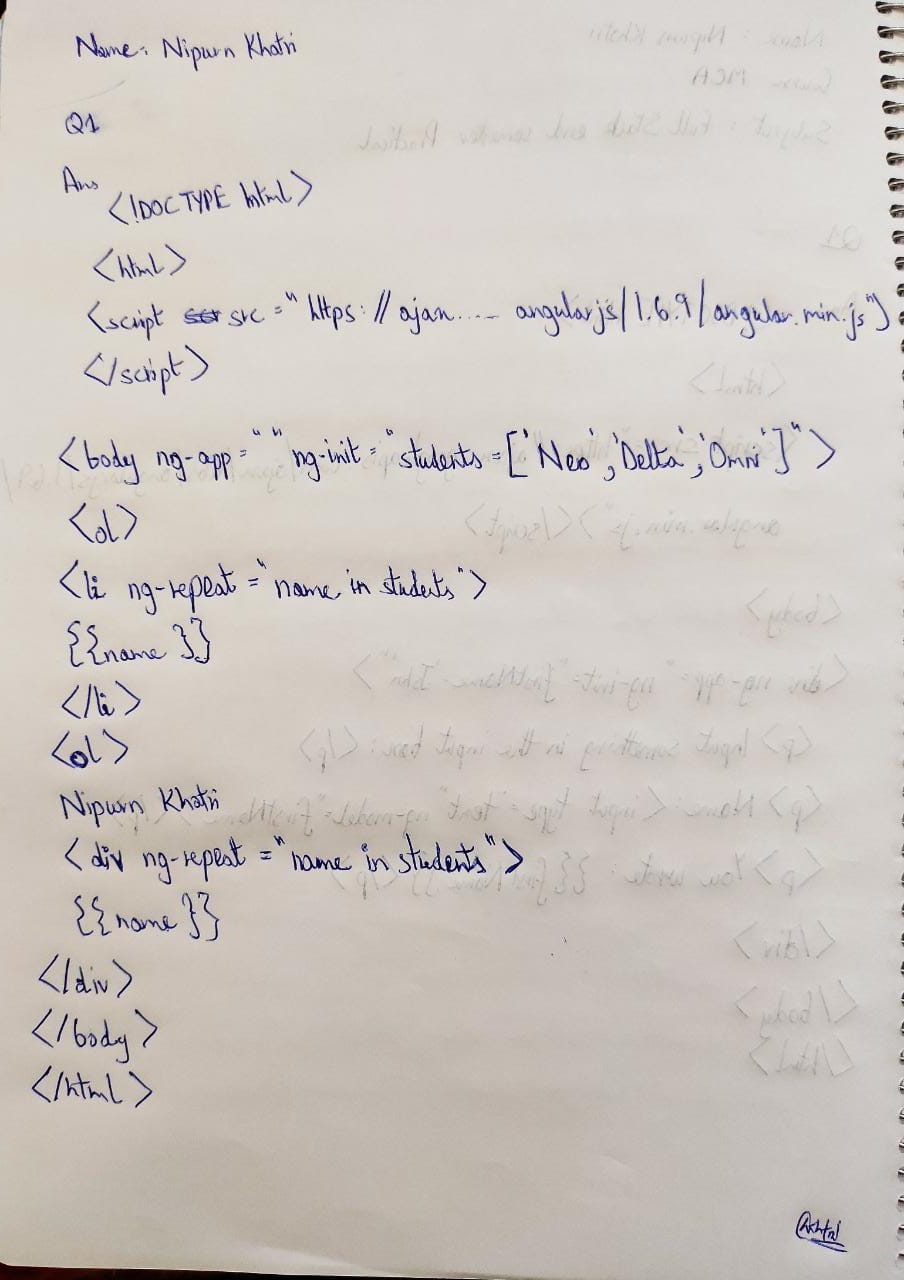 Name: Nipurn Khatri
Q1
Ans
<!DOCTYPE html>
<html>
<script src="https://ajax..... angularjs/1.6.9/angular.min.js">
</script>
<body ng-app="" ng-init="students=['Neo','Delta','Omni']">
<ol>
<li ng-repeat="name in students">
{{name}}
</li>
<ol>
Nipurn Khatri
<div ng-repeat="name in students">
{{name}}
</div>
</body>
</html>